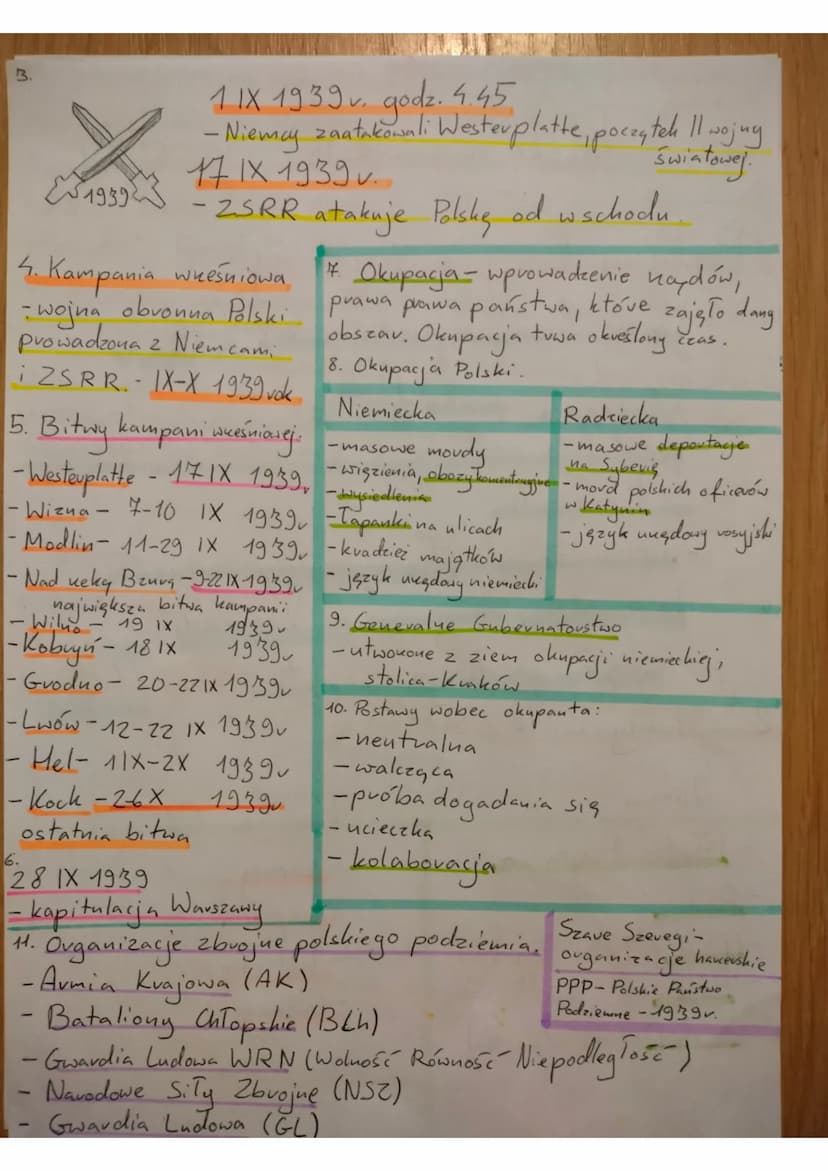 3.
1939
1 IX 1939r. godz. 4.45
- Niemcy zaatakowali Westerplatte, początek II wojny
światowej.
17 IX 1939r.
- ZSRR atakuje Polskę od wschodu.
4. Kampania wrześniowa
- wojna obronna Polski
prowadzona z Niemcami
i ZSRR. - IX-X 1939rok
5. Bitwy kampani wrześniowej.
- Westerplatte - 1-7 IX 1939r
- Wizna - 7-10 IX 1939r
- Modlin - 11-29 IX 1939r
- Nad rzeką Bzurą - 9-22 IX 1939r
największa bitwa kampanii
- Wilno - 19 IX 1939r
- Kobryń - 18 IX 1939r
- Grodno - 20-22 IX 1939r
- Lwów - 12-22 IX 1939r
- Hel - 1 IX-2X 1939r
- Kock - 2-6 X 1939r
ostatnia bitwa
6.
28 IX 1939
- kapitulacja Warszawy
7. Okupacja - wprowadzenie rządów,
prawa prawa państwa, które zajęło dany
obszar. Okupacja trwa określony czas.
8. Okupacja Polski.
Niemiecka
- masowe mordy
- więzienia, obozy koncentracyjne
- wysiedlenia
- Łapanki na ulicach
- kradzież majątków
- język urzędowy niemiecki
Radziecka
- masowe deportacje
na Syberię
- mord polskich oficerów
w Katyniu
- język urzędowy rosyjski
9. Generalne Gubernatorstwo
- utworzone z ziem okupacji niemieckiej,
stolica - Kraków
10. Postawy wobec okupanta:
- neutralna
- walcząca
- próba dogadania się
- ucieczka
- kolaboracja
11. Organizacje zbrojne polskiego podziemia.
- Armia Krajowa (AK)
- Bataliony Chłopskie (BCh)
- Gwardia Ludowa WRN (Wolność Równość Niepodległość)
- Narodowe Siły Zbrojne (NSZ)
- Gwardia Ludowa (GL)
Szare Szeregi -
organizacje harcerskie
PPP - Polskie Państwo
Podziemne - 1939r.